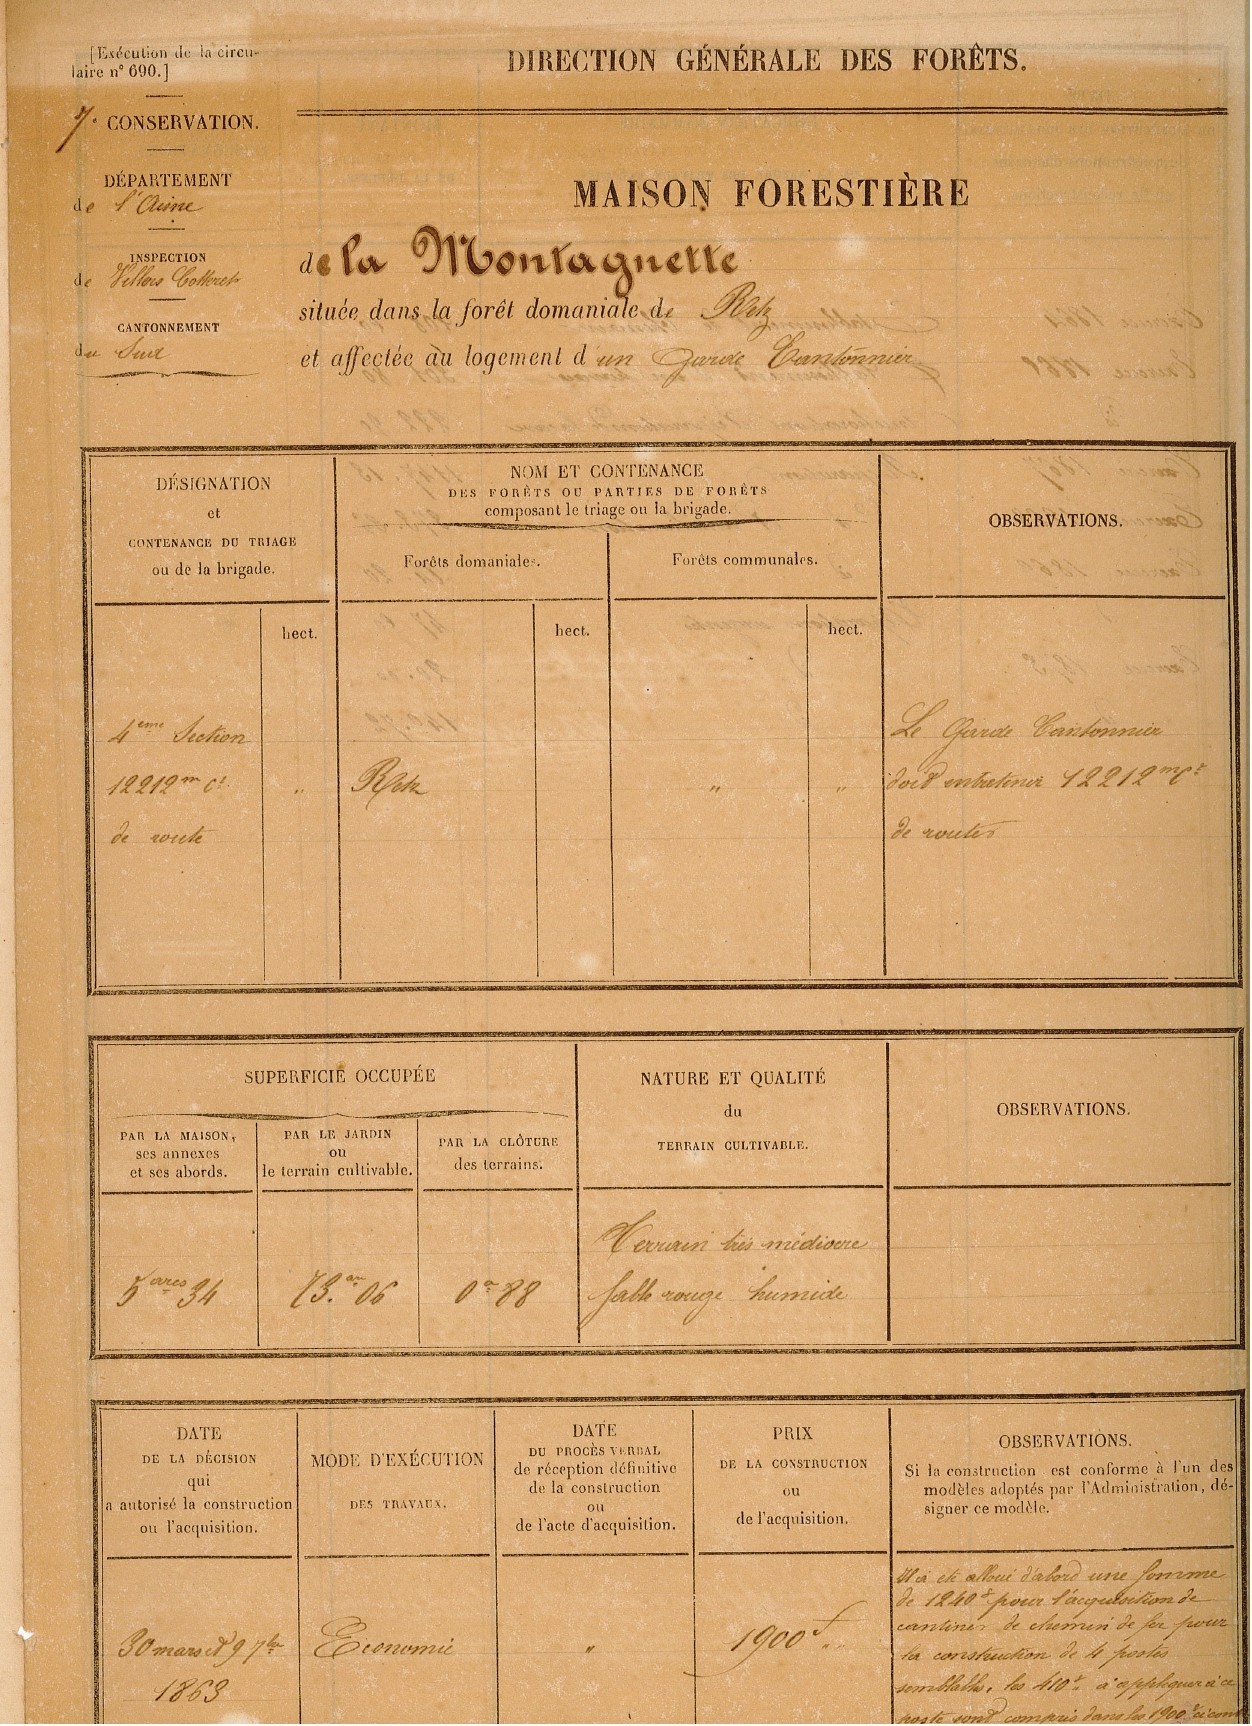 [Exécution de la circu-
laire n° 690.]
7e CONSERVATION.
DÉPARTEMENT
de l'Aisne
INSPECTION
de Villers Cotterets
CANTONNEMENT
du Sud
DIRECTION GÉNÉRALE DES FORÊTS.
MAISON FORESTIÈRE
de la Montagnette
située dans la forêt domaniale de Retz
et affectée au logement d'un Garde Cantonnier
DÉSIGNATION
et
CONTENANCE DU TRIAGE
ou de la brigade.
NOM ET CONTENANCE
DES FORÊTS OU PARTIES DE FORÊTS
composant le triage ou la brigade.
Forêts domaniales.
Forêts communales.
OBSERVATIONS.
hect.
hect.
hect.
4eme Section
12212 m ct
de route
"
Retz
"
"
Le Garde Cantonnier
doit entretenir 12212 m ct
de routes
SUPERFICIE OCCUPÉE
PAR LA MAISON,
ses annexes
et ses abords.
PAR LE JARDIN
ou
le terrain cultivable.
PAR LA CLÔTURE
des terrains.
NATURE ET QUALITÉ
du
TERRAIN CULTIVABLE.
OBSERVATIONS.
5 ares 34
73. ar 06
0 ar 88
Terrain très médiocre
sable rouge humide
DATE
DE LA DÉCISION
qui
a autorisé la construction
ou l'acquisition.
MODE D'EXÉCUTION
DES TRAVAUX.
DATE
DU PROCÈS VERBAL
de réception définitive
de la construction
ou
de l'acte d'acquisition.
PRIX
DE LA CONSTRUCTION
ou
de l'acquisition.
OBSERVATIONS.
Si la construction est conforme à l'un des
modèles adoptés par l'Administration, dé-
signer ce modèle.
30 mars et 9 7bre
1863
Economie
"
1900 f "
Il a été alloué d'abord une somme
de 1240 f pour l'acquisition de
cantines de chemin de fer pour
la construction de 4 postes
semblables, les 410 f à appliquer à ce
poste sont compris dans les 1900 f ci contre